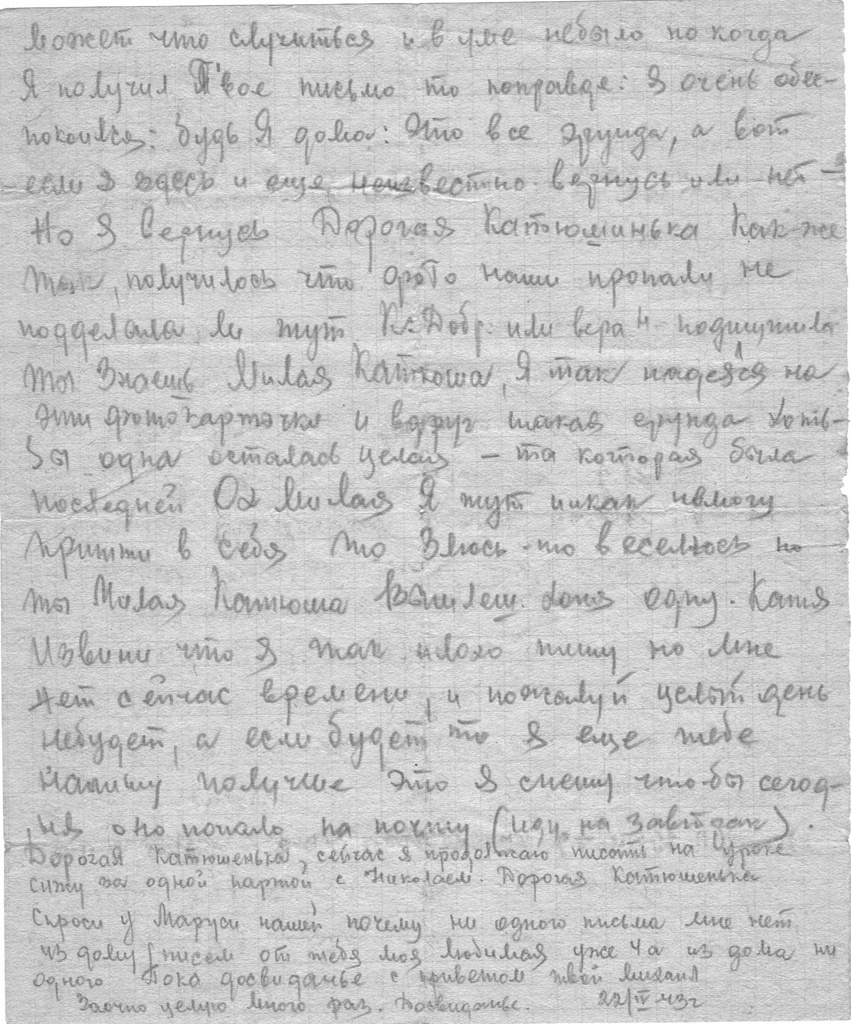 может что случиться и в уме небыло но когда
Я получил Твое письмо то поправде: Я очень обес-
покоился: будь Я дома: Это все ерунда, а вот
если я здесь и еще неизвестно вернусь или нет-
Но Я Вернусь Дорогая Катюшинька Как-же
так, получилось что фото наши пропали не
подделала ли тут К. Добр. или вера подшутила
ты Знаешь Милая Катюша, Я так надеялся на
эти фотокарточки и вдруг такая ерунда Хоть-
бы одна осталась целая - та которая была
последней Ох Милая Я тут никак немогу
притти в себя то Злюсь-то веселюсь но
ты Милая Катюша Вышлеш. хотя одну. Катя
Извини что я так плохо пишу но мне
нет сейчас времени, и пожалуй целый день
небудет, а если будет то я еще тебе
напишу получше Это я спешу что-бы сегод-
ня оно попало на почту (иду на завтрак).
Дорогая Катюшенька, сейчас я продолжаю писать на Уроке
сижу за одной партой с Николаем. Дорогая Катюшенька
Спроси у Маруси нашей почему ни одного письма мне нет
из дому писем от тебя моя любимая уже 4 а из дома ни
одного Пока досвиданье с приветом твой Михаил
Заочно целую много раз. Досвиданье. 22/IV 43г